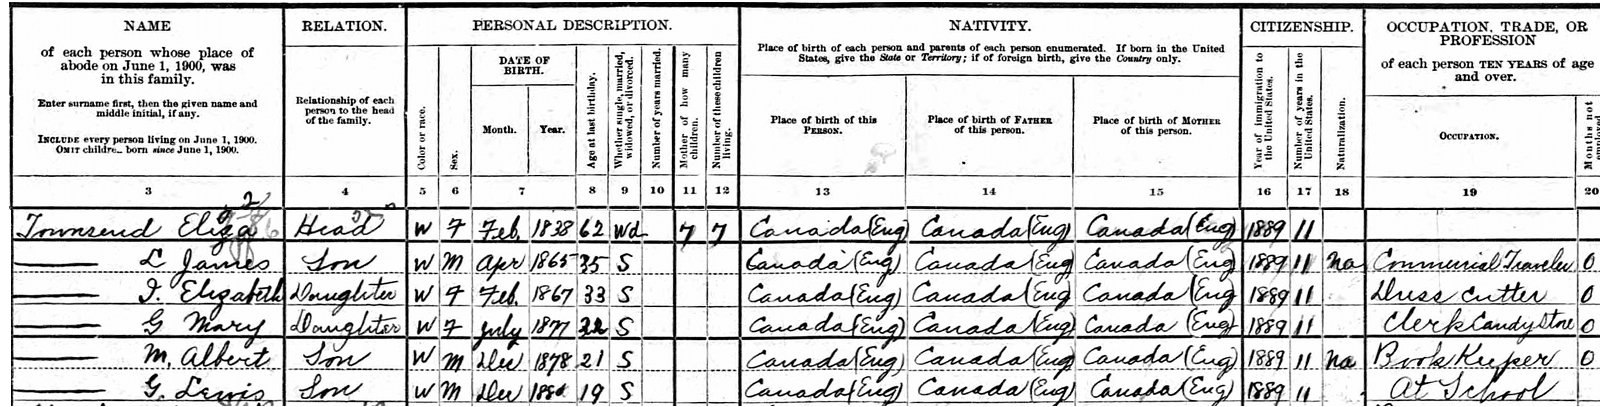 NAME
of each person whose place of
abode on June 1, 1900, was
in this family.
Enter surname first, then the given name and
middle initial, if any.
INCLUDE every person living on June 1, 1900.
OMIT childre_ born since June 1, 1900.
RELATION.
Relationship of each
person to the head
of the family.
PERSONAL DESCRIPTION.
Color or race.
Sex.
DATE OF
BIRTH.
Month.
Year.
Age at last birthday.
Whether single, married,
widowed, or divorced.
Number of years married.
Mother of how many
children.
Number of these children
living.
NATIVITY.
Place of birth of each person and parents of each person enumerated. If born in the United
States, give the State or Territory; if of foreign birth, give the Country only.
Place of birth of this
PERSON.
Place of birth of FATHER
of this person.
Place of birth of MOTHER
of this person.
CITIZENSHIP.
Year of immigration to
the United States.
Number of years in the
United States.
Naturalization.
OCCUPATION, TRADE, OR
PROFESSION
of each person TEN YEARS of age
and over.
OCCUPATION.
Months not
employed.
3 4 5 6 7 8 9 10 11 12 13 14 15 16 17 18 19 20
Townsend Eliza Head W F Feb. 1838 62 Wd 7 7 Canada (Eng) Canada (Eng) Canada (Eng) 1889 11
L James Son W M Apr 1865 35 S Canada (Eng) Canada (Eng Canada (Eng) 1889 11 na Commercial Traveler 0
I. Elizabeth Daughter W F Feb. 1867 33 S Canada (Eng) Canada (Eng Canada (Eng) 1889 11 Dress Cutter 0
G Mary Daughter W F July 1877 22 S Canada (Eng) Canada (Eng Canada (Eng) 1889 11 Clerk Candy Store 0
M. Albert Son W M Dec 1878 21 S Canada (Eng) Canada (Eng Canada (Eng) 1889 11 na Book Keeper 0
G. Lewis Son W M Dec 1880 19 S Canada (Eng) Canada (Eng) Canada (Eng) 1889 11 At School